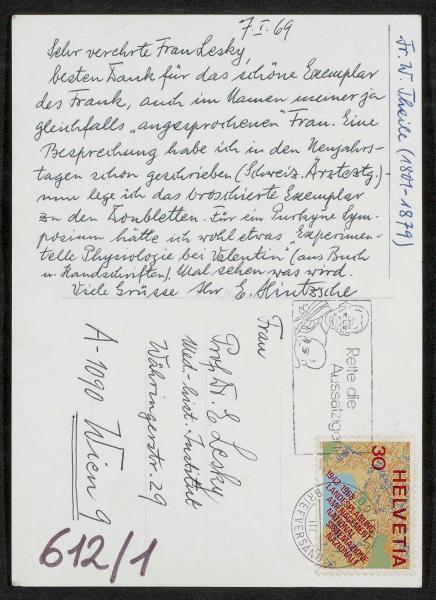 7.I.69
Sehr verehrte Frau Lesky,
besten Dank für das schöne Exemplar
des Frank, auch im Namen meiner ja
gleichfalls „angesprochenen" Frau. Eine
Besprechung habe ich in den Neujahrs-
tagen schon geschrieben (Schweiz. Ärzteztg.) -
nun lege ich das broschierte Exemplar
zu den Doubletten. Für ein Purkyne Sym-
posium hätte ich wohl etwas „Experimen-
telle Physiologie bei Valentin" (aus Buch
u. Handschriften). Mal sehen was wird.
Viele Grüsse Ihr E. Hintzsche
Fr. W. Theile (1801-1879)
Frau
Prof. Dr. E. Lesky
Med.-hist. Institut
Währingerstr. 29
A-1090 Wien 9
612/1
Rette die
Aussätzigen
BRIEFVERSAND
III
HELVETIA
30
1943-1968
LANDESPLANUNG
AMENAGEMENT
NATIONAL
SISTEMAZIONE
NAZIONALE